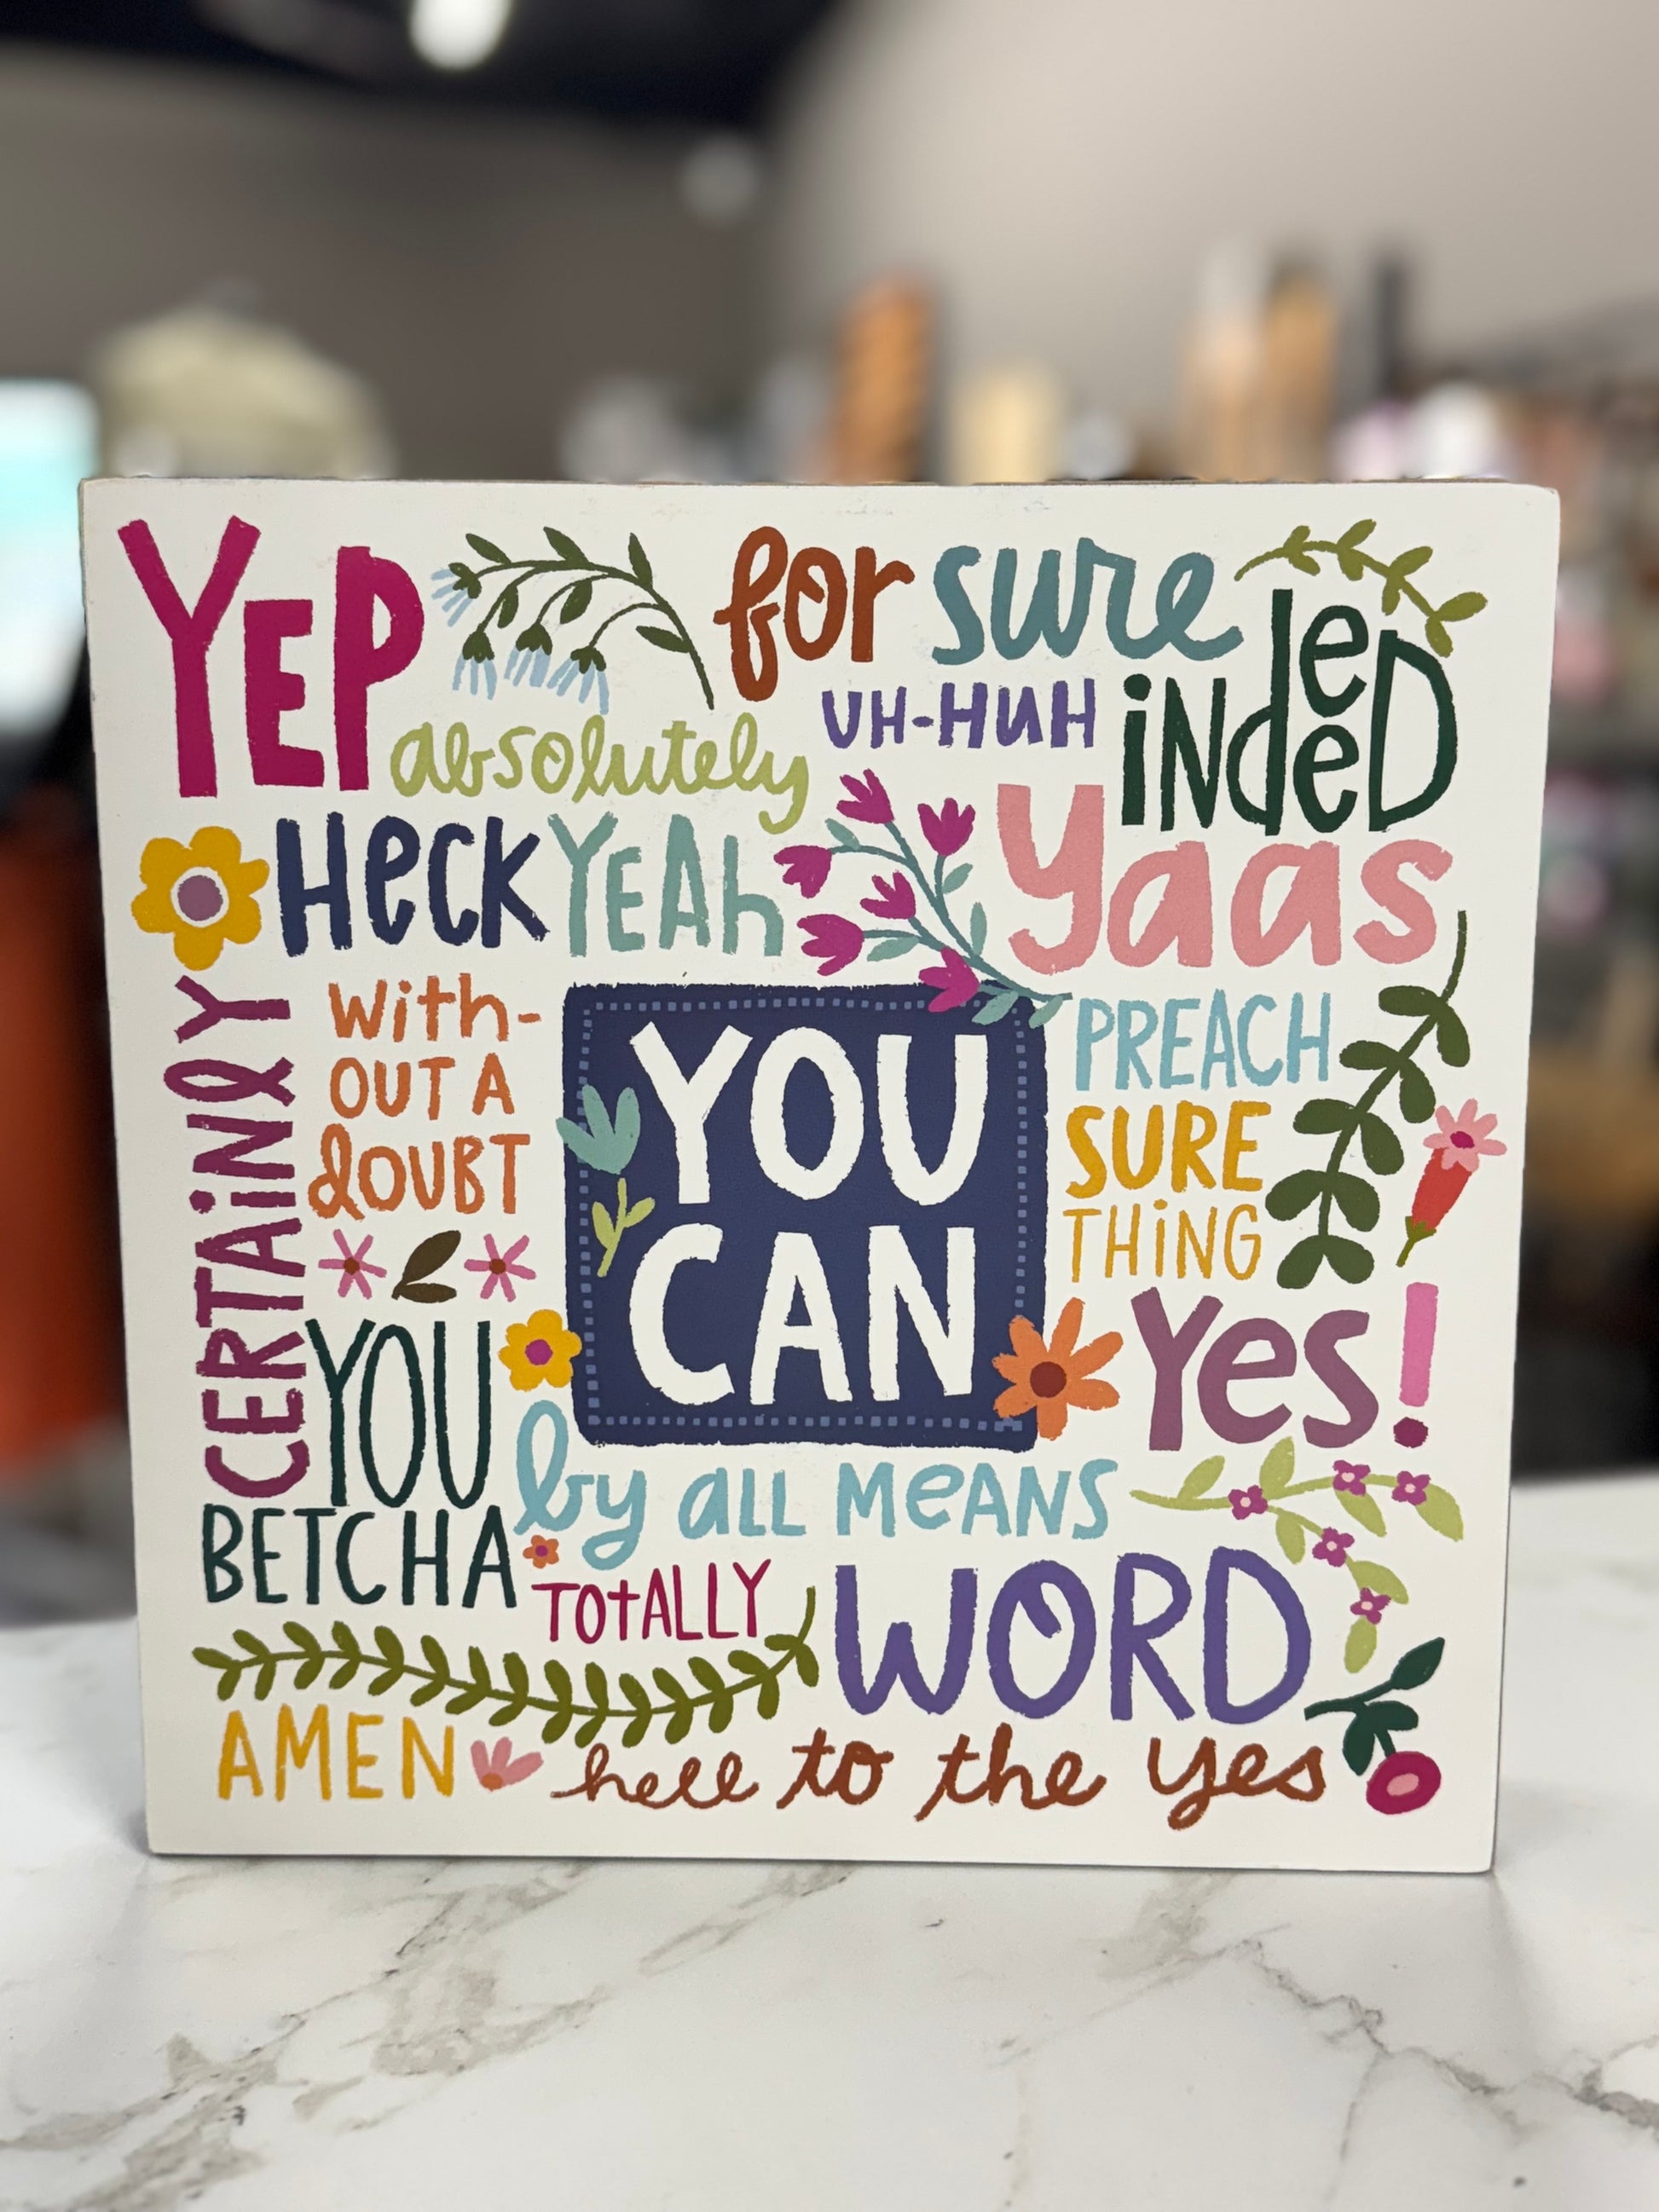 YEP
for sure
absolutely
UH-HUH
iNdeeD
HeCK YEAh
Yaas
CERTAiNlY
With-
OUT A
doUBT
YOU
CAN
PREACH
SURE
THiNG
Yes!
YOU
BETCHA
by aLL MeANS
TOtALLY
WORD
AMEN
hell to the yes